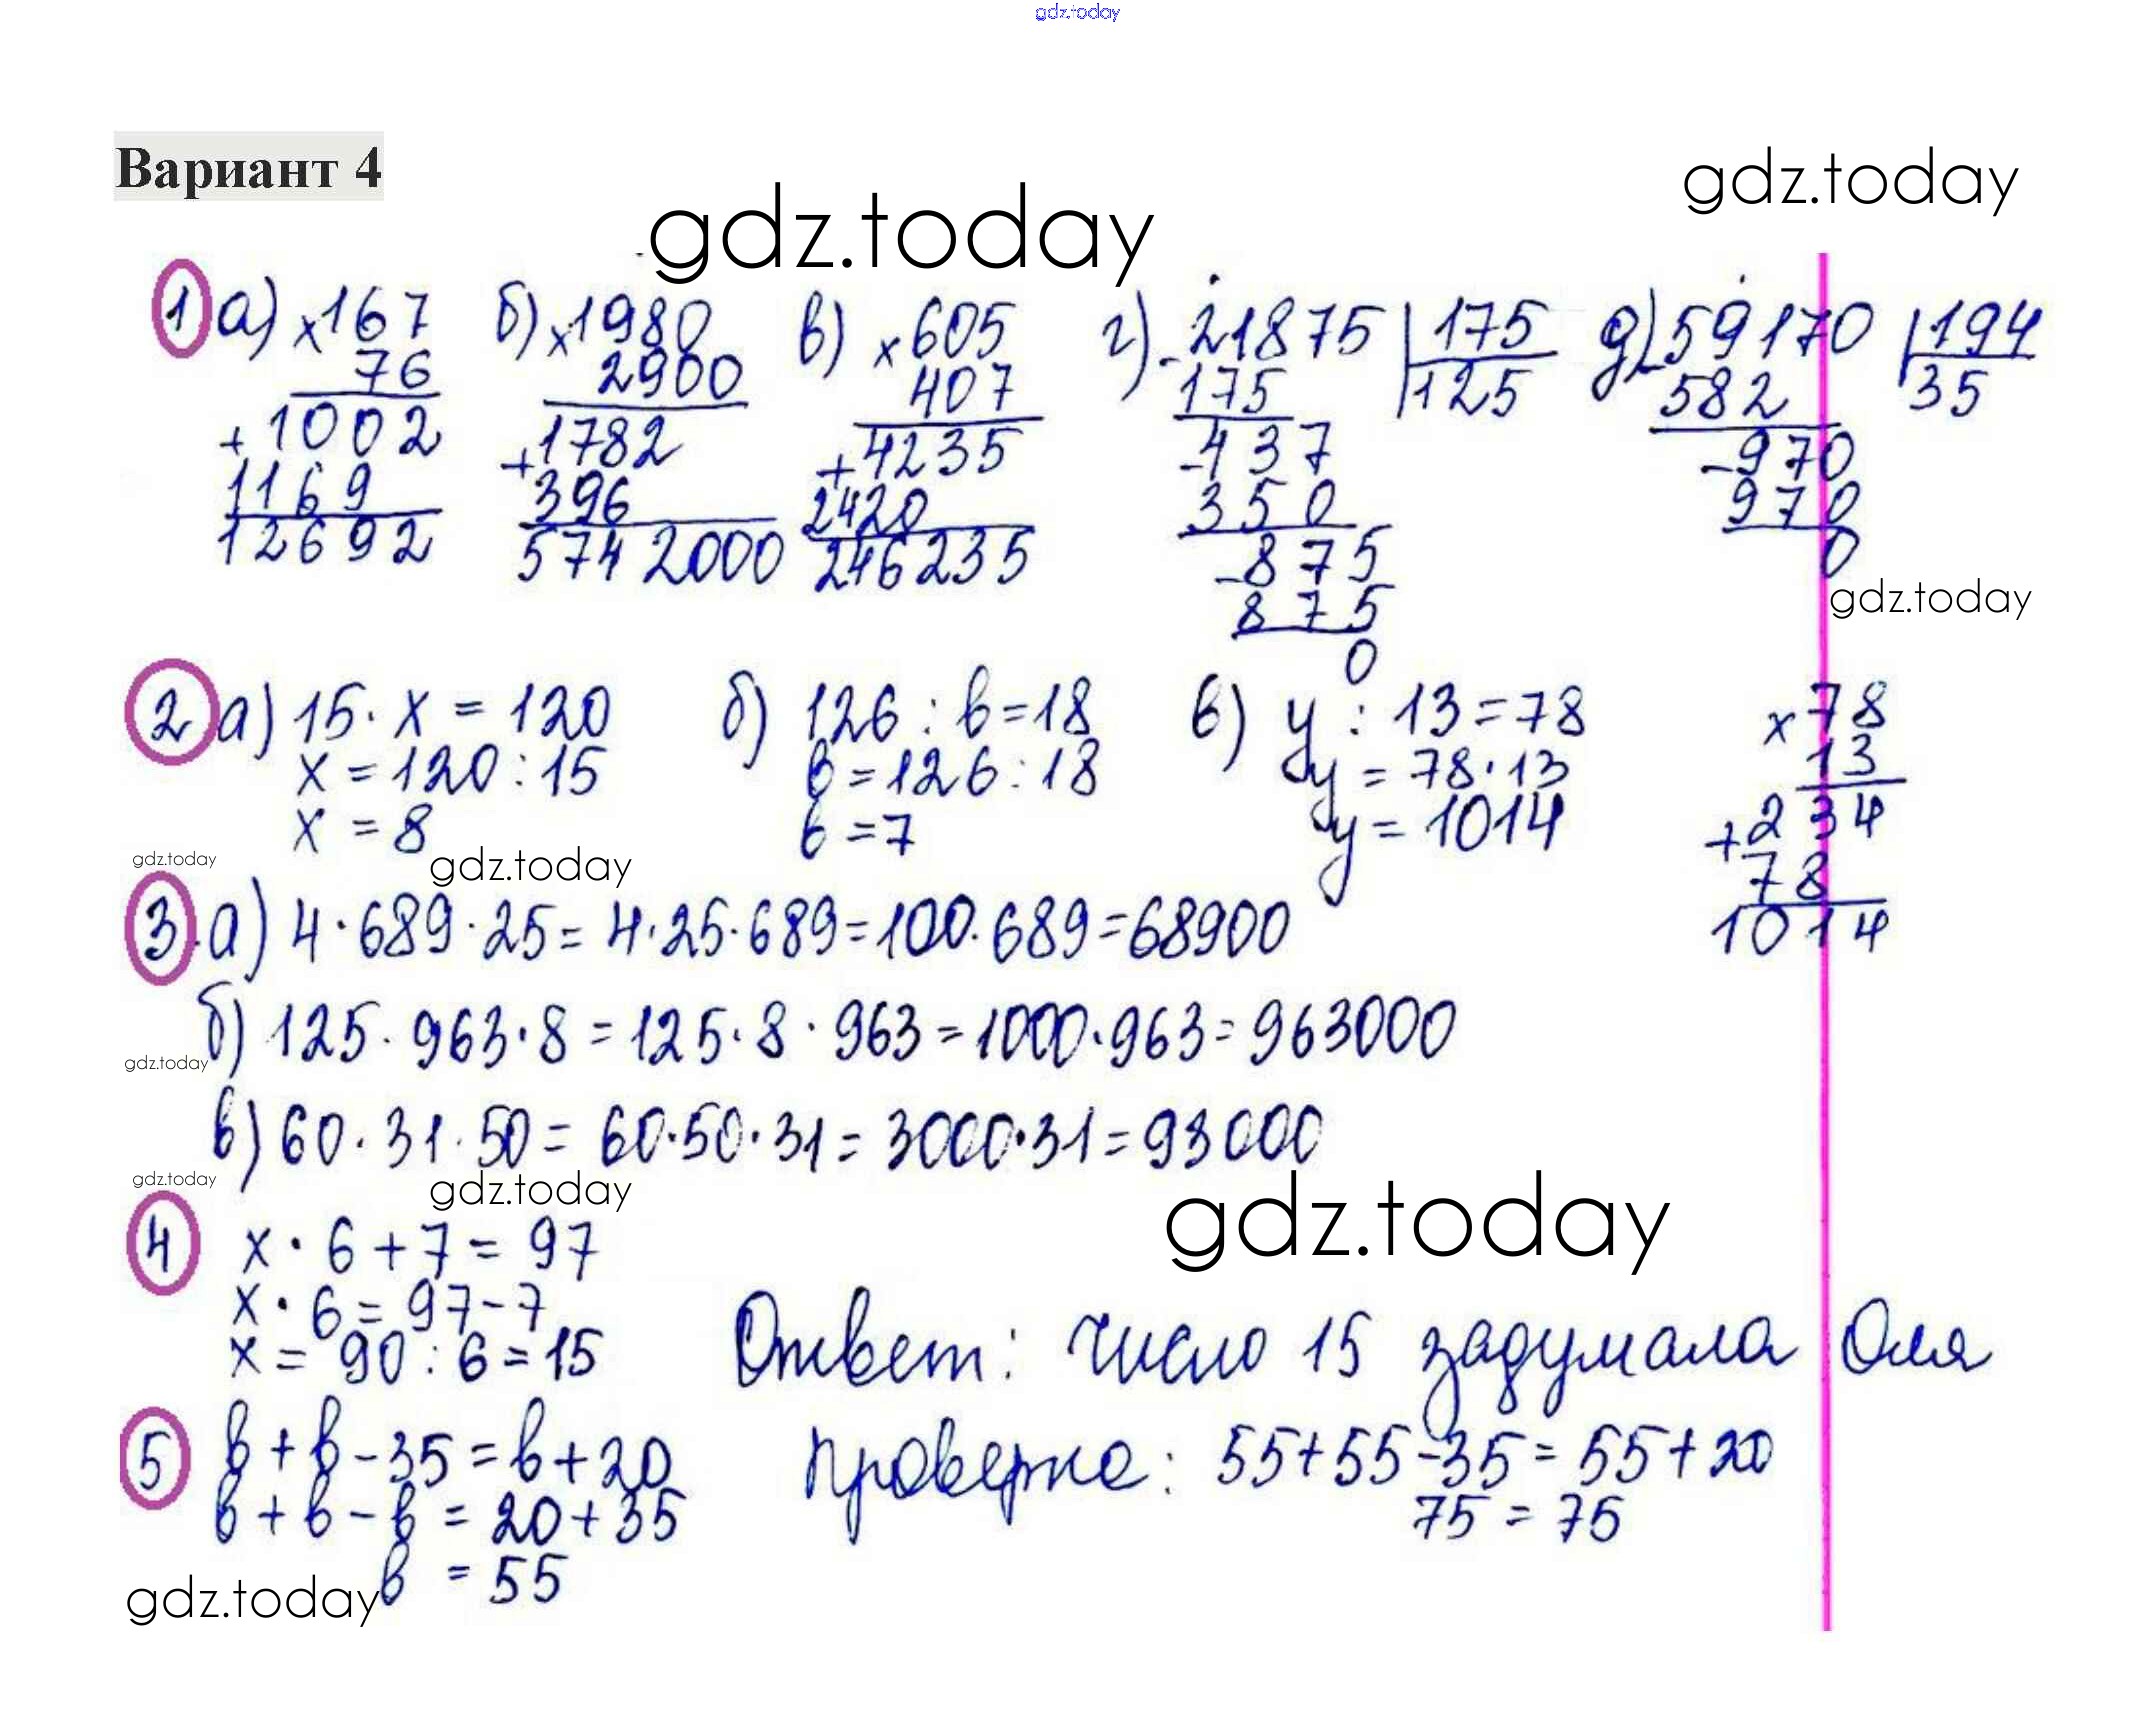 gdz.today
Вариант 4
gdz.today
gdz.today
1 а) ×167 б) ×1980 в) ×605 г) -21875 175 д) -59170 194
76 2900 407 175 125 582 35
+1002 +1782 +4235 -437 -970
1169 396 2420 350 970
12692 5742000 246235 -875 0
875
0
gdz.today
2 а) 15·x=120 б) 126:в=18 в) у:13=78 ×78
x=120:15 в=126:18 у=78·13 13
x=8 в=7 у=1014 +234
78
1014
gdz.today gdz.today
3 а) 4·689·25=4·25·689=100·689=68900
б) 125·963·8=125·8·963=1000·963=963000
gdz.today
в) 60·31·50=60·50·31=3000·31=93000
gdz.today gdz.today gdz.today
4 x·6+7=97
x·6=97-7
x=90:6=15 Ответ: число 15 задумала Оля
5 в+в-35=в+20 Проверка: 55+55-35=55+20
в+в-в=20+35 75=75
в=55
gdz.today